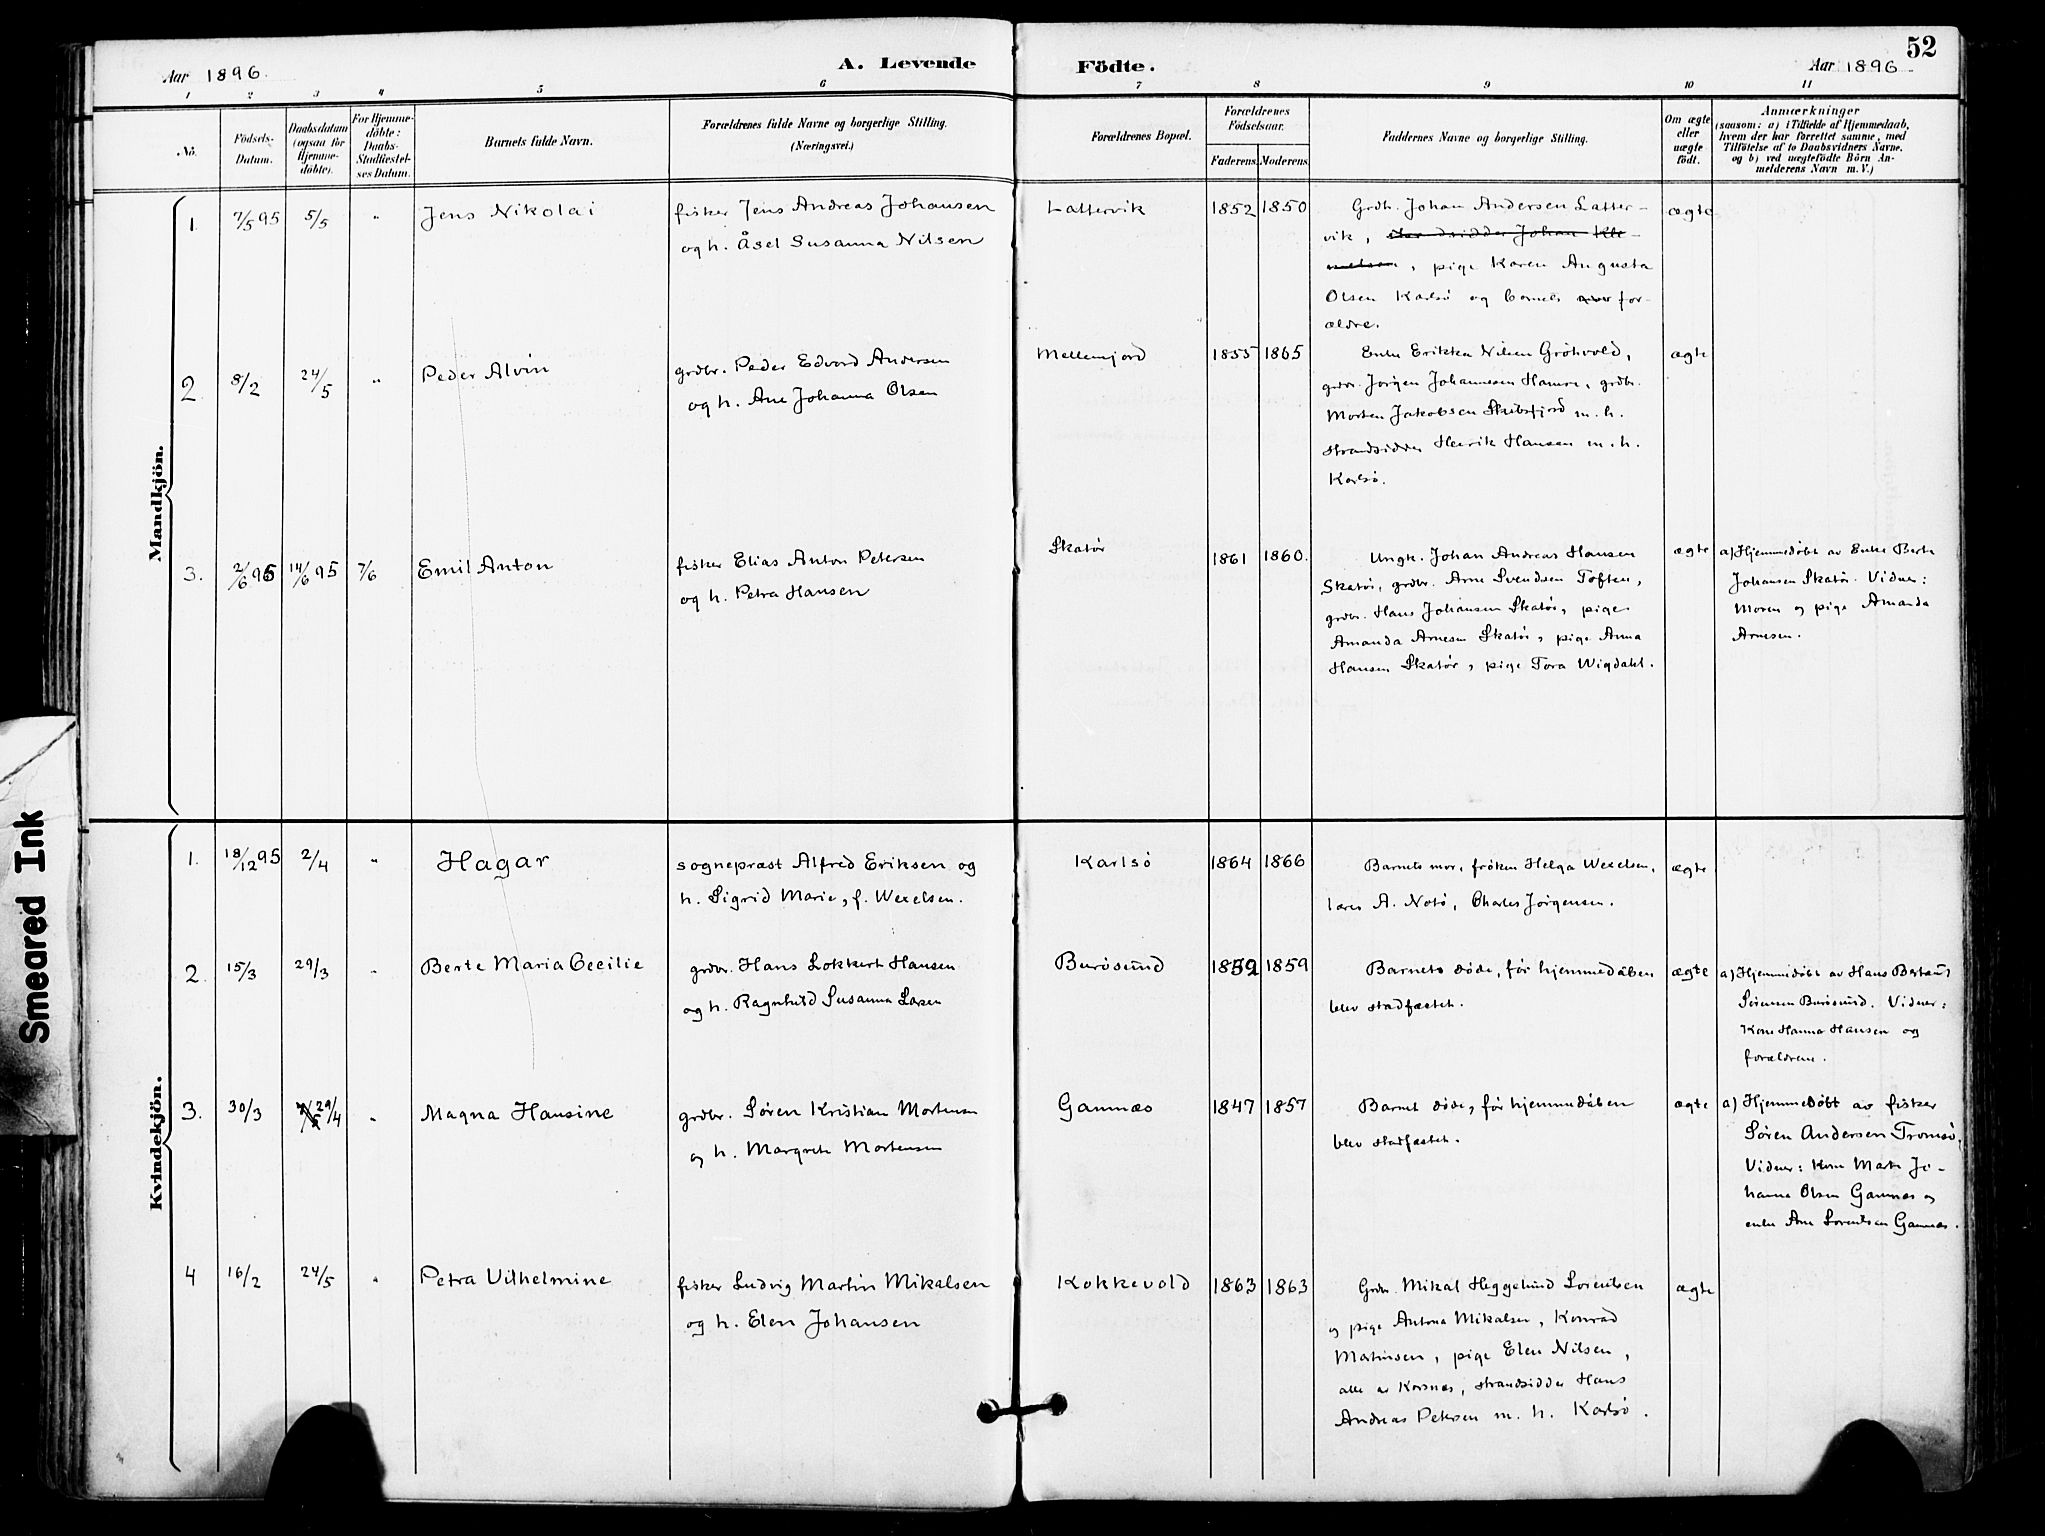 52
Aar 1896.
A. Levende Födte.
Aar 1896
1 2 3 4 5 6 7 8 9 10 11
No.
Födsels-
Datum.
Daabsdatum
(ogsaa for
Hjemme-
döbte).
For Hjemme-
döbte:
Daabs-
Stadfæstel-
ses Datum.
Barnets fulde Navn.
Forældrenes fulde Navne og borgerlige Stilling.
(Næringsvei.)
Forældrenes Bopæl.
Forældrenes
Födselsaar.
Faderens. Moderens.
Faddernes Navne og borgerlige Stilling.
Om ægte
eller
uægte
födt.
Anmærkninger
(saasom: a) i Tilfælde af Hjemmedaab,
hvem der har forrettet samme, med
Tilföielse af to Daabsvidners Navne.
og b) ved uægtefödte Börn An-
melderens Navn m. V.)
Mandkjön.
1. 7/5 95 5/5 " Jens Nikolai
fisker Jens Andreas Johansen
og h. Åsel Susanna Nilsen
Lattervik 1852 1850
Grdb. Johan Andersen Latter-
vik, pige Karen Augusta
Olsen Karlsö og barnets for-
ældre.
ægte
2. 8/2 24/5 " Peder Alvin
grdbr. Peder Edvard Andersen
og h. Ane Johanna Olsen
Mellemjord 1855 1865
Enke Erikka Nilsen Gröhvold,
grdbr. Jørgen Johannesen Hamre, grdbr.
Morten Jakobsen Skibsfjord m. h.
strandsidder Henrik Hansen m. h.
Karlsö.
ægte
3. 2/6 95 14/6 95 7/6 Emil Anton
fisker Elias Anton Petersen
og h. Petra Hansen
Skatör 1861 1860.
Ungk. Johan Andreas Hansen
Skatör, grdbr. Arne Svendsen Toften,
grdbr. Hans Johansen Skatör, pige
Amanda Arnesen Skatör, pige Anna
Hansen Skatör, pige Tora Wigdahl.
ægte
a) Hjemmedøbt av Enke Berte
Johansen Skatör. Vidner:
Moren og pige Amanda
Arnesen.
Kvindekjön.
1. 18/12 95 2/4 " Hagar
sognepræst Alfred Eriksen og
h. Sigrid Marie, f. Wexelsen.
Karlsö 1864 1866
Barnets mor, frøken Helga Wexelsen,
lærer A. Notö, Charles Jörgensen.
ægte
2. 15/3 29/3 " Berte Maria Cecilie
grdbr. Hans Lokkert Hansen
og h. Ragnhild Susanna Larsen
Burösund 1852 1859
Barnets døde, før hjemmedåben
blev stadfæstet.
ægte
a) Hjemmedøbt av Hans
Sörensen Burösund. Vidner:
Kone Hanna Hansen og
forældrene.
3. 30/3 29/4 " Magna Hansine
grdbr. Søren Kristian Mortensen
og h. Margrete Mortensen
Gamnæs 1847 1857
Barnet døde, før hjemmedåben
blev stadfæstet.
ægte
a) Hjemmedøbt av fisker
Søren Andersen Tromsö,
Vidner: Kone Marte Jo-
hanna Olsen Gamnæs og
enke Ane Lorentsen Gamnæs.
4 16/2 24/5 " Petra Vilhelmine
fisker Ludvig Martin Mikalsen
og h. Elen Johansen
Kokkevold 1863 1863
Grdbr. Mikal Heggelund Lorentsen
og pige Antona Mikalsen, Konrad
Martinsen, pige Elen Nilsen,
alle av Korsnæs, strandsidder Hans
Andreas Petersen m. h. Karlsö.
ægte
Smeared Ink